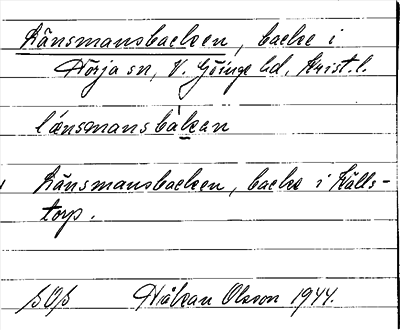 Länsmansbacken, backe i
Norja sn, V. Göinge hd, Krist. l.
lánsmansbàkan
Länsmansbacken, backe i Källs-
torp.
SOS Håkan Olsson 1944.